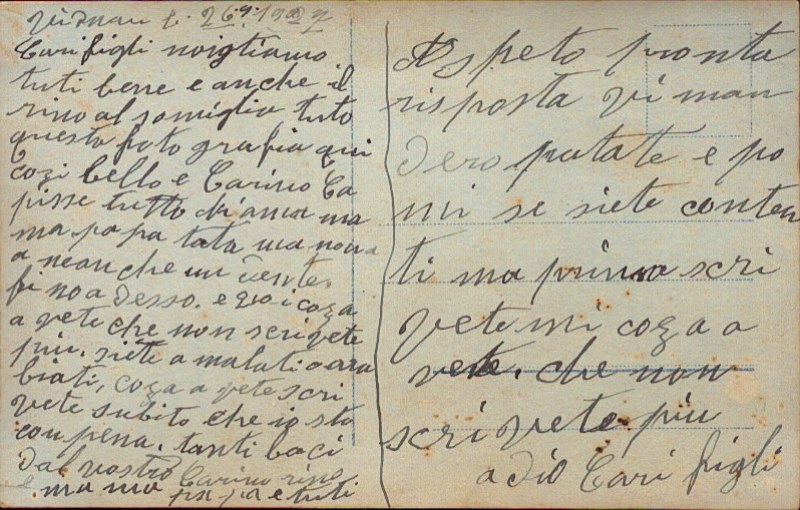 26.9.19
Cari figli noi stiamo
tuti bene e anche il
rino al somiglia tuto
questa foto grafia qui
cozi bello e Carino Ca
pisse tutto chiama ma
ma. papa tata ma non a
a neanche un dente.
fi no a desso. e voi coza
a vete che non scrivete
più. siete a malati o ara
biati, coza a vete scri
vete subito che io sto
con pena. tanti baci
dal vostro Carino rino
e mama papa e tuti
Aspeto pronta
risposta vi man
dero patate e po
mi se siete conten
ti ma prima scri
vete mi coza a
vete. che non
scri vete più
a dio Cari figli